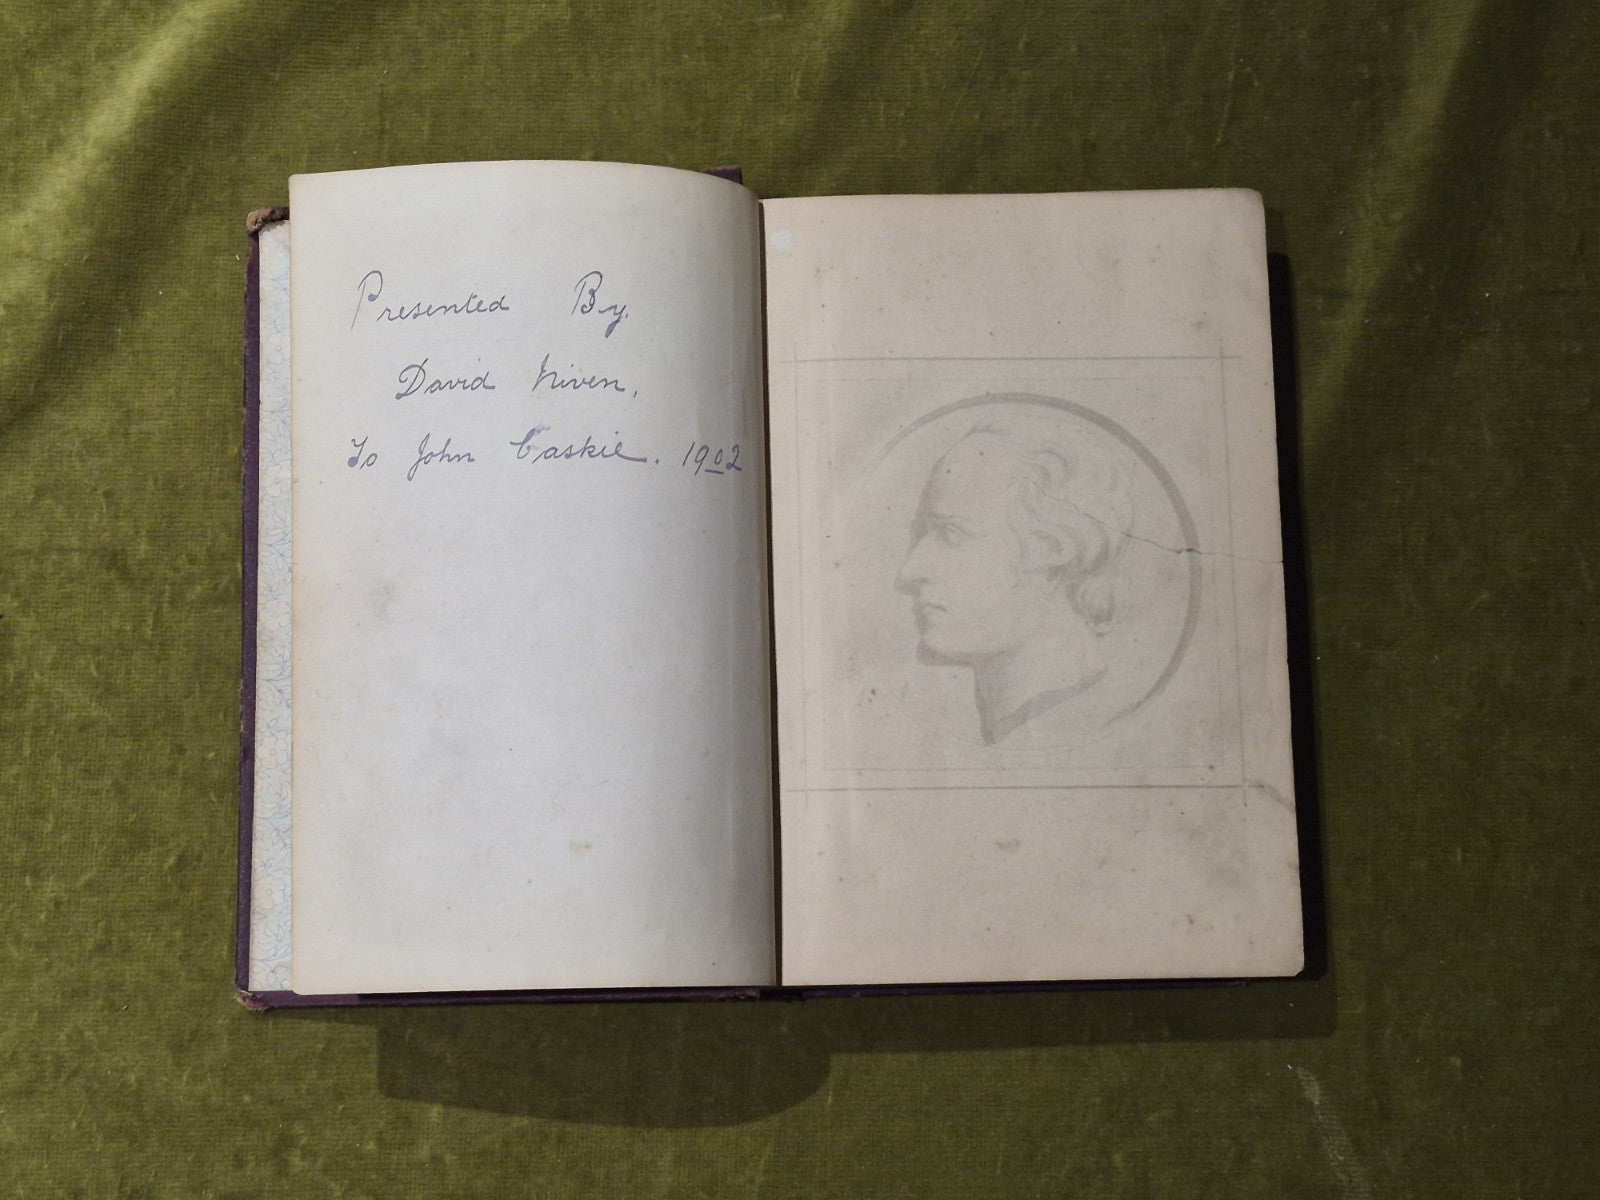 Presented By.
David Niven.
To John Caskie. 1902